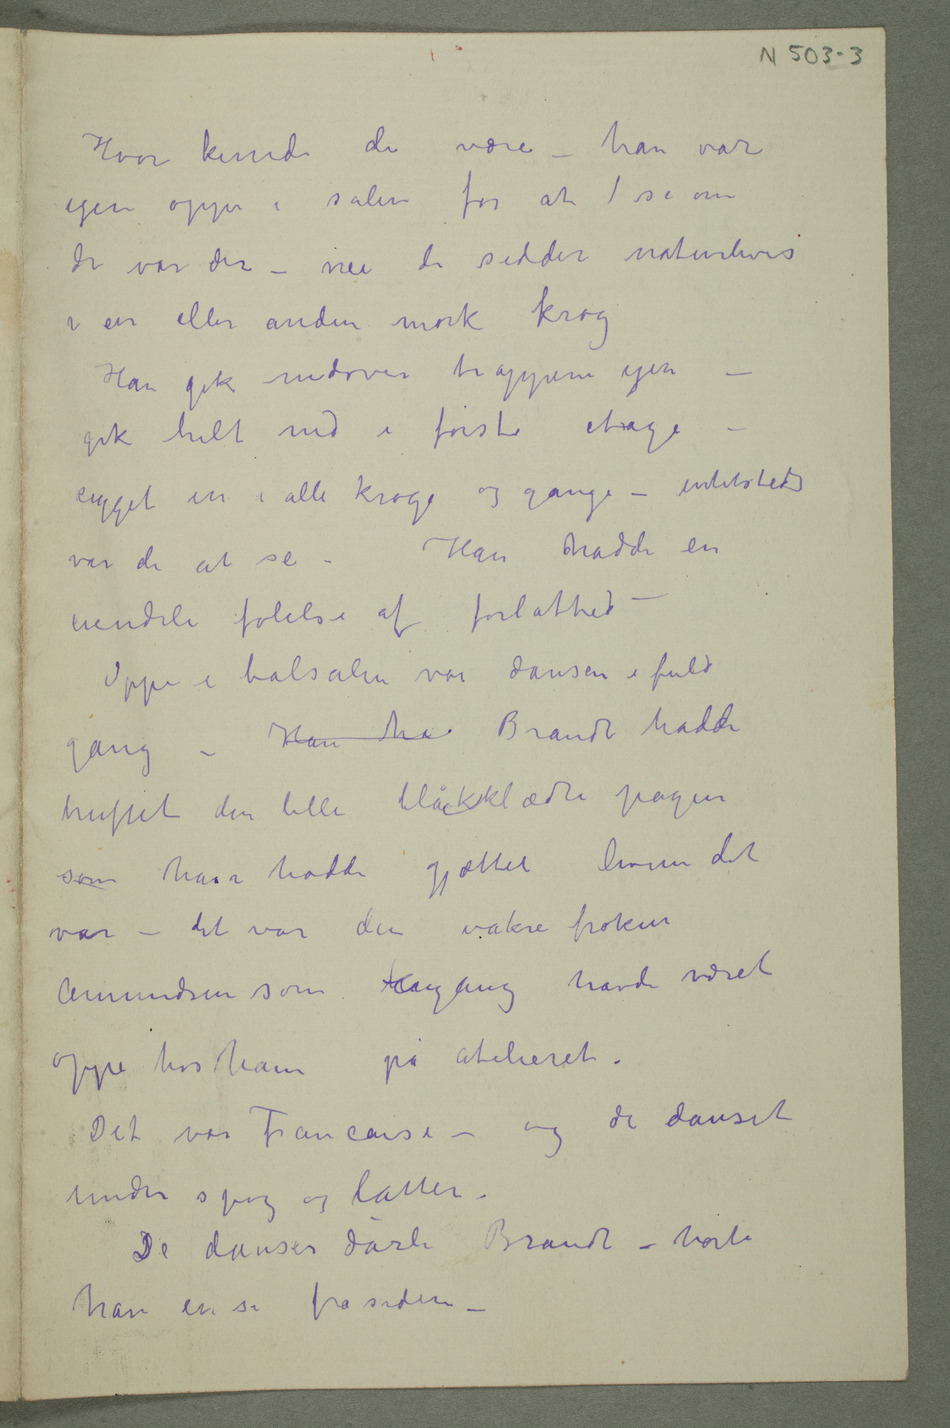 N 503-3
Hvor kunde de være – han var
igen oppe i salen for at se om
de var der – nei de sidder naturlivis
i en eller anden mørk krog
Han gik nedover trappene igen –
gik helt ned i første etage –
kigget ind i alle kroge og gange – intetsteds
var de at se – Han hadde en
uendeli følelse af forlathed –
Oppe i balsalen var dansen i fuld
gang – Han ha Brandt hadde
truffet den lille blåklædte pagen
som han hadde gjættet hvem det
var – det var den vakre frøken
Amundsen som engang havde været
oppe hos ham på atelieret.
Det var Francaise – og de danset
under spøg og latter.
De danser dårli Brandt – hørte
han en si fra siden –